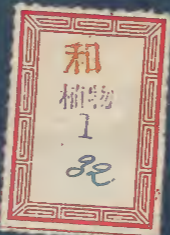 和
植物
1
82